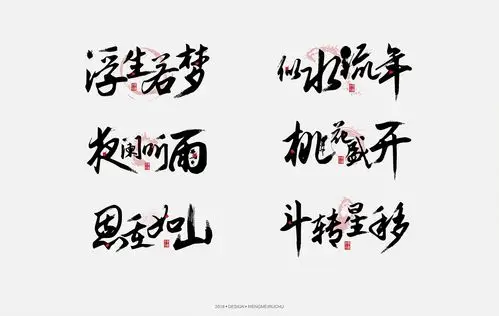 浮生若梦
似水流年
夜阑听雨
桃花盛开
恩重如山
斗转星移
2018 • DESIGN • MENGMEIRUCHU